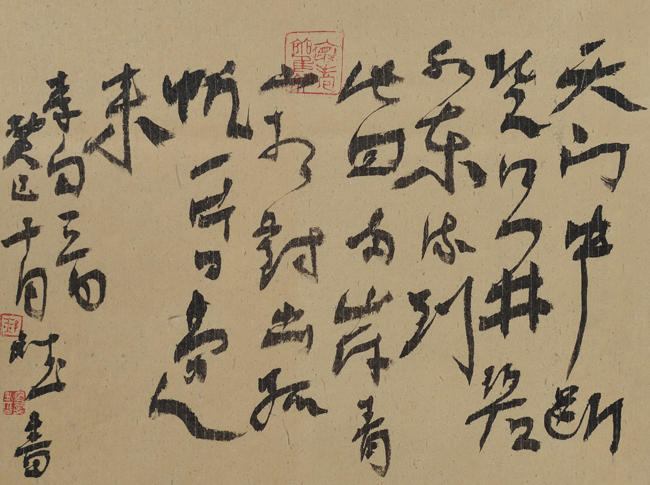 天门中断
楚江开碧
水东流到
此回两岸青
山相對出孤
帆一片日邊
来
李白
癸巳十月書